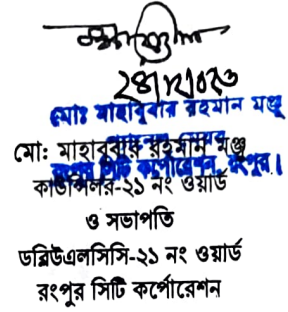 মোঃ মাহাবুবার রহমান মঞ্জু
রংপুর সিটি কর্পোরেশন, রংপুর।
মো: মাহাবুবার রহমান মঞ্জু
কাউন্সিলর-২১ নং ওয়ার্ড
ও সভাপতি
ডব্লিউএলসিসি-২১ নং ওয়ার্ড
রংপুর সিটি কর্পোরেশন